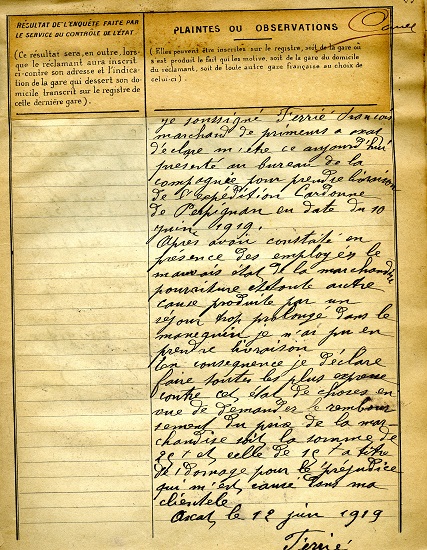 RÉSULTAT DE L'ENQUÊTE FAITE PAR
LE SERVICE DU CONTRÔLE DE L'ÉTAT
(Ce résultat sera, en outre, lors-
que le réclamant aura inscrit
ci-contre son adresse et l'indica-
tion de la gare qui dessert son do-
micile transcrit sur le registre de
cette dernière gare).
PLAINTES OU OBSERVATIONS
(Elles peuvent être inscrites sur le registre, soit de la gare où
s'est produit le fait qui les motive, soit de la gare du domicile
du réclamant, soit de toute autre gare française au choix de
celui-ci)
je soussigné Terrié François
marchand de primeurs a
déclare m'être ce aujourd'hui
presenté au bureau de la
compagnie pour prendre livraison
de l'expédition Cardonne
de Perpignan en date du 10
juin 1919.
Apres avoir constaté en
présence des employés le
mauvais état de la marchandise
pourriture et toute autre
cause produite par un
séjour trop prolongé dans le
je n'ai pu en
prendre livraison
En consequence je déclare
faire toutes les plus
contre cet état de choses en
vue de demander le rembour
sement du prix de la mar-
chandise soit la somme de
et celle de a titre
de domage pour le préjudice
qui m'est causé dans ma
clientele
le 12 juin 1919
Terrié